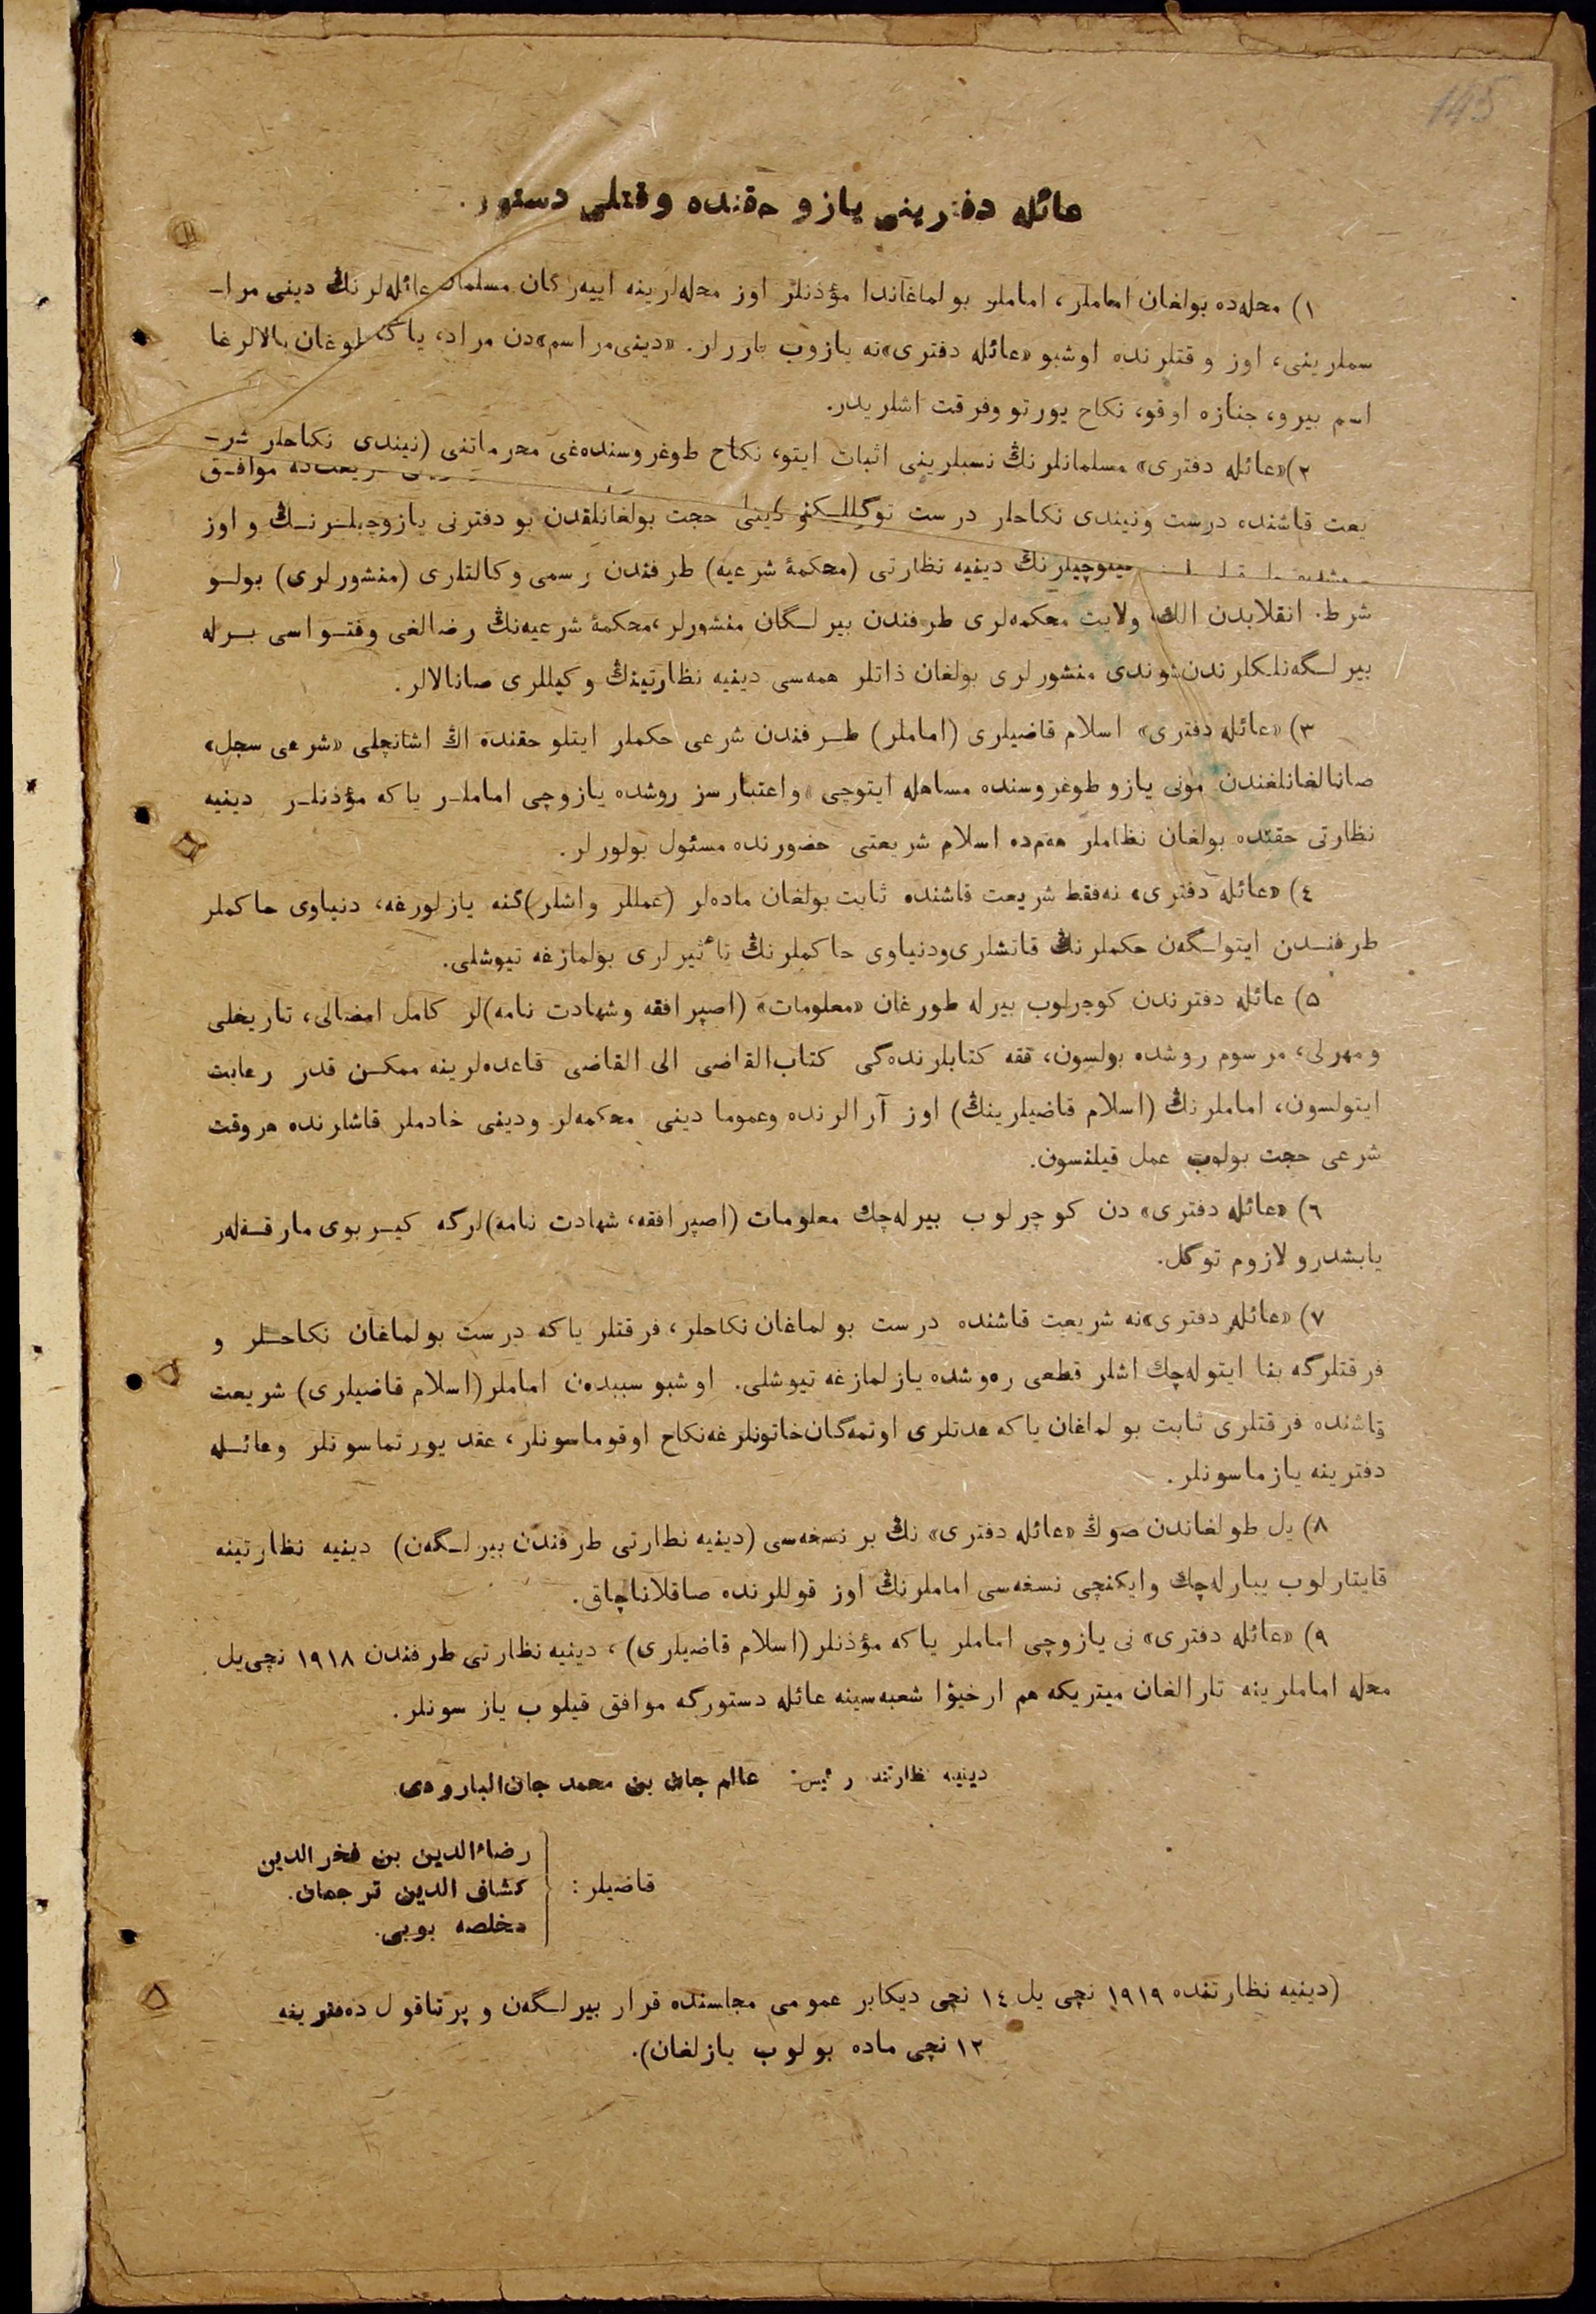 145
عائله دفترینی یازو حقنده وقتلی دستور.
١) محله‌ده بولغان اماملر، اماملر بولماغاندا مؤذنلر اوز محله‌لرینه اییه‌رگان مسلمان عائله‌لرنڭ دینی مرا-
سملرینی، اوز وقتلرنده اوشبو «عائله دفتری»نه یازوب باررلر. «دینی مراسم»دن مراد، یاڭا طوغان بالالرغا
اسم بیرو، جنازه اوقو، نکاح یورتو وفرقت اشلریدر.
٢) «عائله دفتری» مسلمانلرنڭ نسبلرینی اثبات ایتو، نکاح طوغروسنده‌غی محرماتنی (نیندی نکاحلر شر-
یعت قاشنده درست ونیندی نکاحلر درست توگللـکنی) دینی حجت بولغانلقدن بو دفترنی یازوچیلـرنـڭ و اوز
دینیه نظارتی (محکمهٔ شرعیه) طرفندن رسمی وکالتلری (منشورلری) بولـو
شرط. انقلابدن الك ولایت محکمه‌لری طرفندن بیرلـگان منشورلر، محکمهٔ شرعیه‌نڭ رضالغی وفتـواسی بـرله
بیرلـگه‌نلـکلرندن شوندی منشورلری بولغان ذاتلر همه‌سی دینیه نظارتینڭ وکیللری صانالالر.
٣) «عائله دفتری» اسلام قاضیلری (اماملر) طـرفندن شرعی حکملر ایتلو حقنده اڭ اشانچلی «شرعی سجل»
صانالغانلغندن مونی یازو طوغروسنده مساهله ایتوچی واعتبارسز روشده یازوچی اماملـر یاکه مؤذنلـر دینیه
نظارتی حقنده بولغان نظاملر هم‌ده اسلام شریعتی حضورنده مسئول بولورلر.
٤) «عائله دفتری» نه‌فقط شریعت قاشنده ثابت بولغان ماده‌لر (عمللر واشلر) گنه یازلورغه، دنیاوی حاکملر
طرفنـدن ایتولـگه‌ن حکملرنڭ قاتشلری‌ودنیاوی حاکملرنڭ تأثیرلری بولمازغه تیوشلی.
٥) عائله دفترندن کوچرلوب بیرله طورغان «معلومات» (اصپرافقه وشهادت نامه)لر کامل امضالی، تاریخلی
ومهرلی، مرسوم روشده بولسون، فقه کتابلرنده‌گی کتاب‌القاضی الی القاضی قاعده‌لرینه ممکـن قدر رعایت
ایتولسون، اماملرنڭ (اسلام قاضیلرینڭ) اوز آرالرنده وعموما دینی محکمه‌لر ودینی خادملر قاشلرنده هروقت
شرعی حجت بولوب عمل قیلنسون.
٦) «عائله دفتری» دن کوچرلوب بیرله‌چك معلومات (اصپرافقه، شهادت نامه)لرگه کیـربوی مارقـه‌لر
یابشدرو لازوم توگل.
٧) «عائله دفتری»نه شریعت قاشنده درست بولماغان نکاحلر، فرقتلر یاکه درست بولماغان نکاحـلر و
فرقتلرگه بنا ایتوله‌چك اشلر قطعی ره‌وشده یازلمازغه تیوشلی. اوشبو سببدەن اماملر (اسلام قاضیلری) شریعت
قاشنده فرقتلری ثابت بولماغان یاکه عدتلری اوتمه‌گان خاتونلرغه نکاح اوقوماسونلر، عقد یورتماسونلر وعائـله
دفترینه یازماسونلر.
٨) یل طولغاندن صوڭ «عائله دفتری» نڭ بر نسخه‌سی (دینیه نظارتی طرفندن بیرلـگه‌ن) دینیه نظارتینه
قایتارلوب یبارله‌چك وایکنچی نسخه‌سی اماملرنڭ اوز قوللرنده صاقلاناچاق.
٩) «عائله دفتری» نی یازوچی اماملر یاکه مؤذنلر (اسلام قاضیلری)، دینیه نظارتی طرفندن ١٩١٨ نچی‌یل
محله اماملرینه تارالغان میتریکه هم ارخیوا شعبه‌سینه عائله دستورگه موافق قیلوب یازسونلر.
دینیه نظارتنده رئیس: عالم جان بن محمد جان البارودی.
قاضیلر:
رضاءالدین بن فخرالدین
کشاف الدین ترجمان.
مخلصه بوبی.
(دینیه نظارتنده ١٩١٩ نچی یل ١٤ نچی دیکابر عمومی مجلسنده قرار بیرلـگه‌ن و پرتاقول ده‌فترینه
١٢ نچی ماده بولوب یازلغان).